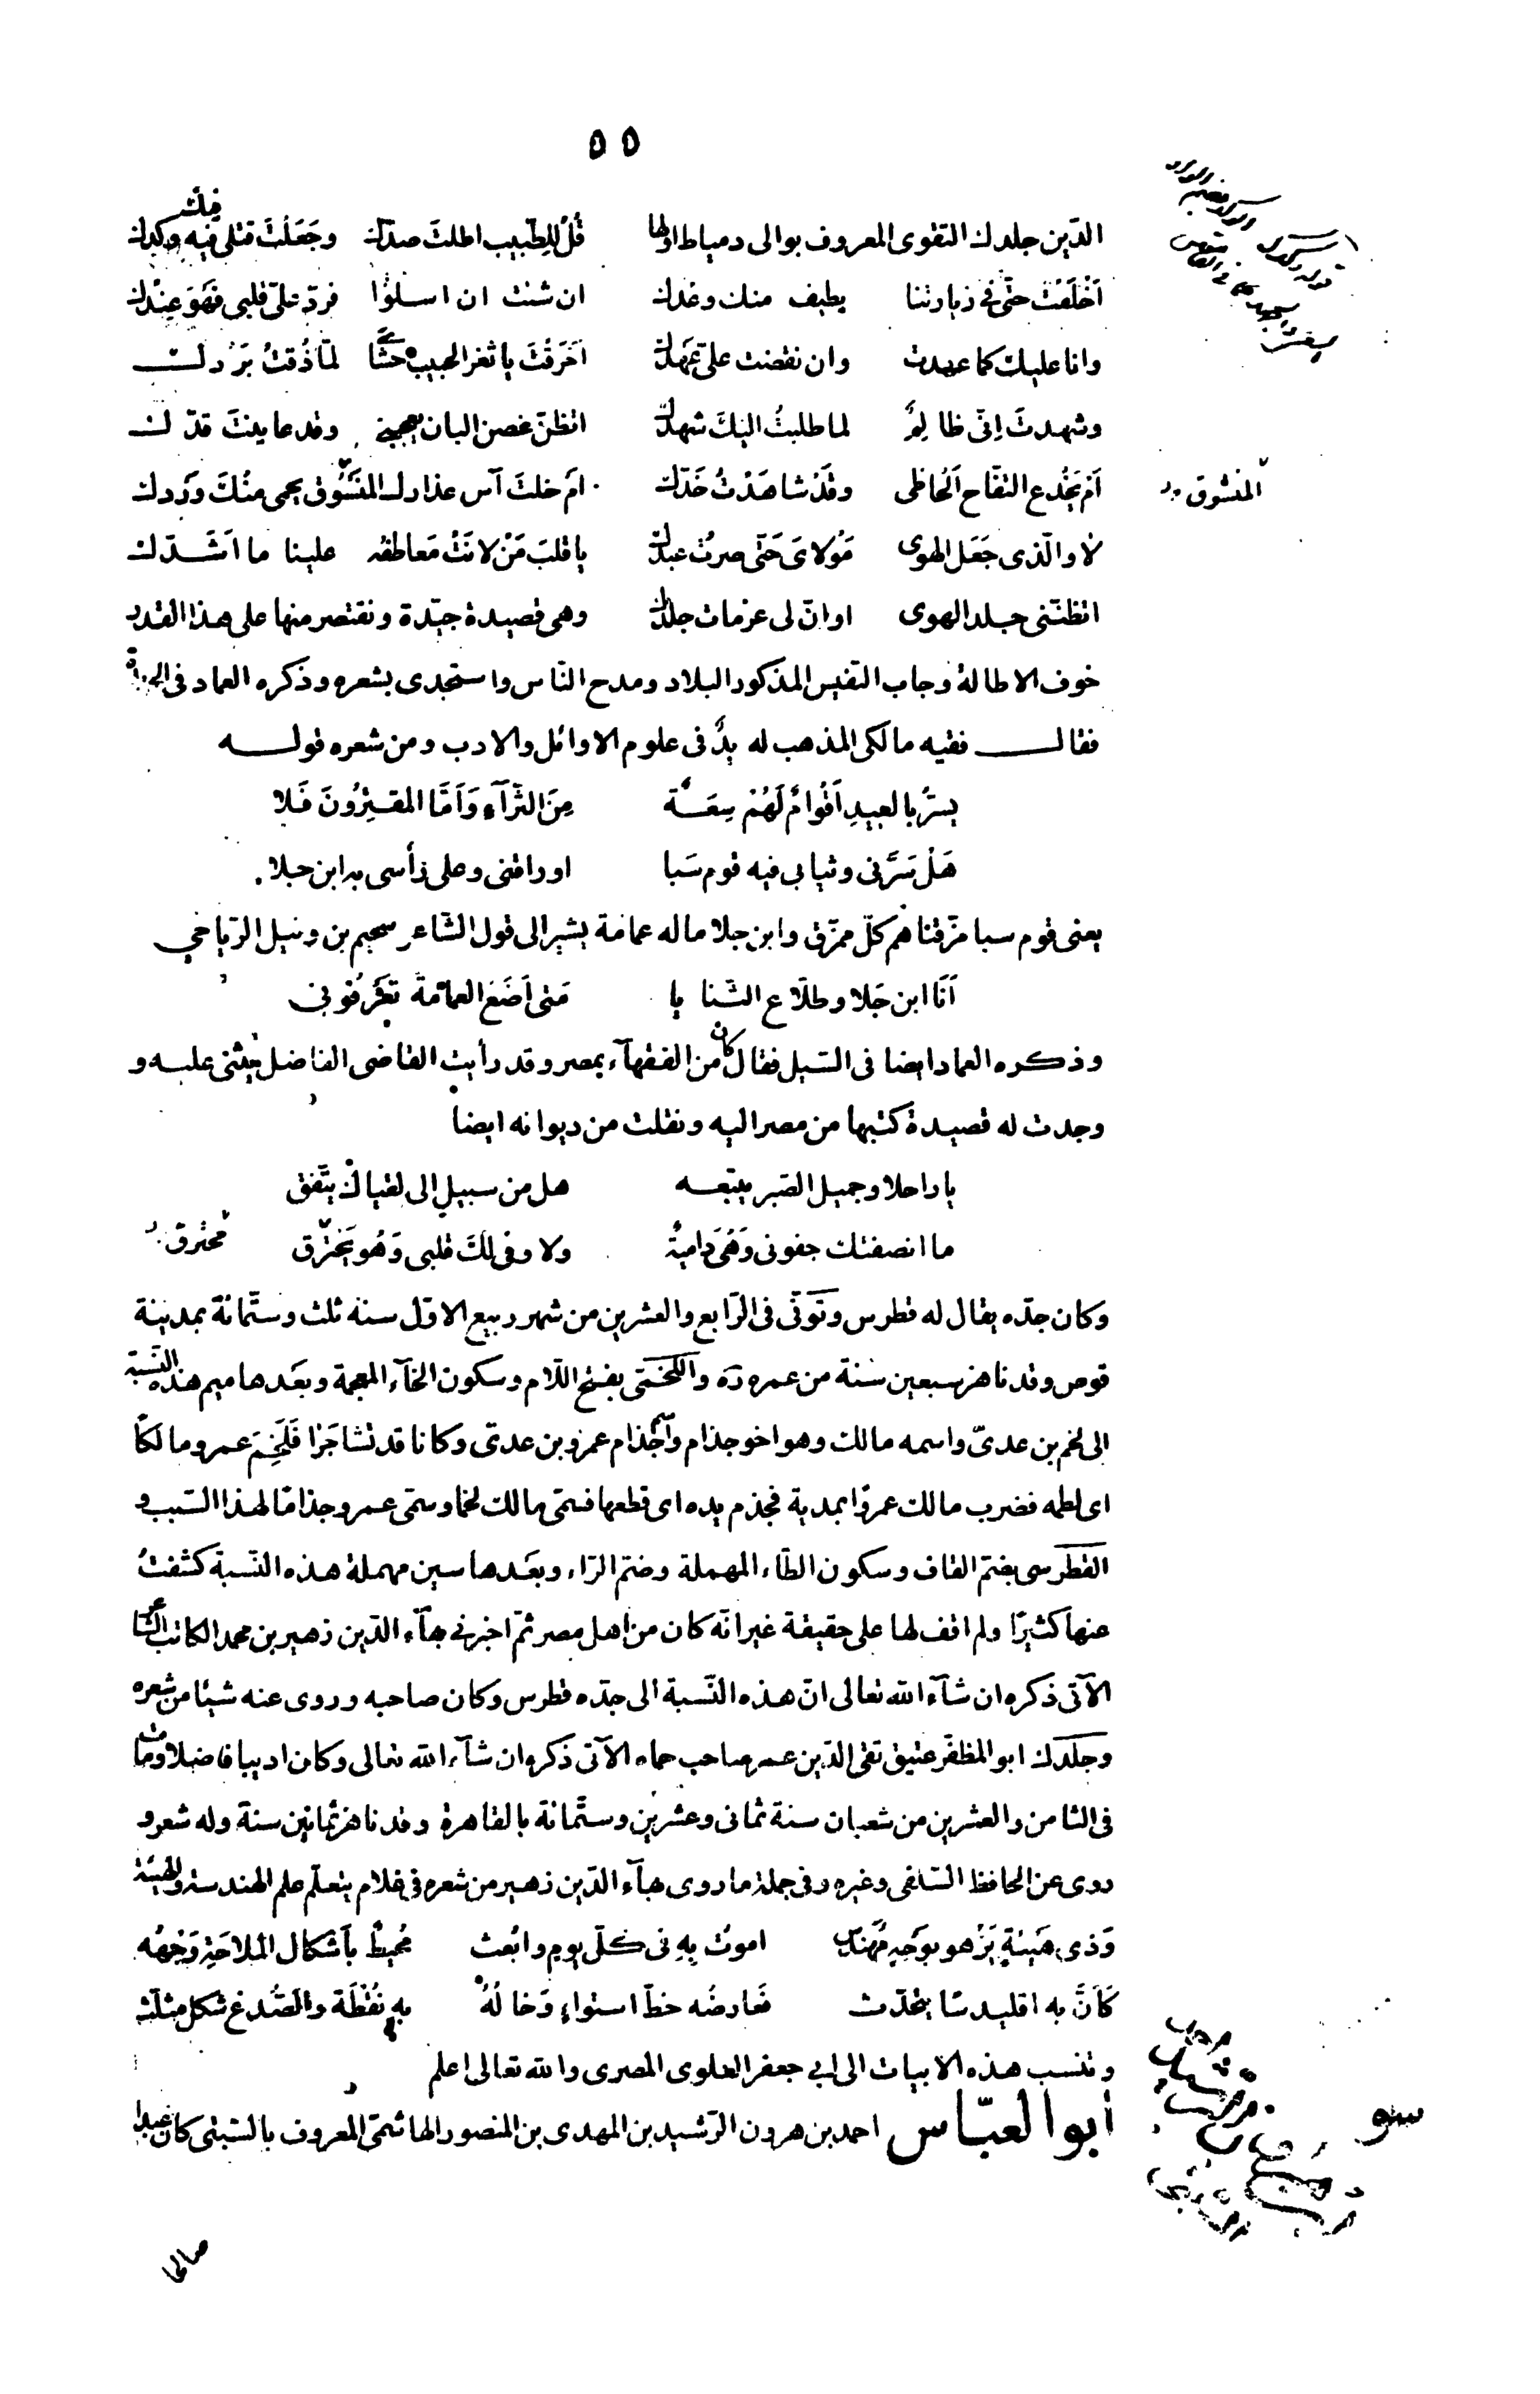 ٥٥
الدّين جلدك التقوى المعروف بوالى دمياط اولها قُلْ لِلطّبيب اطلتَ صدّك وجَعَلْتَ قتلى فيه وكدك
فيك
اَخْلَفْتَ حتّى فى زيارتنا بطيف منك وعدك ان شئت ان اسلوا فردّ علىّ قلبى فَهَوَ عِنْدك
وانا عليك كما عهدت وان نقضت علىّ عَهَدك اَحَرَقْتَ يا ثغر الحبيب حَشَاىَ لمّا ذُقتُ بَرْدك
وشهدتَ اِنّى ظالِمٌ لما طلبتُ اليكَ شهدك اتظنّ غصن البان يعجبنى وقد عاينتَ قدّك
اَم يَخْدع التفّاح اَلْحاظى وقَدْ شاهَدْتُ خَدّك امْ خلتَ آس عذارك المنشوق يحمى مِنْكَ وَرْدك
المنشوق
لا والّذى جَعَل الهوى مَوْلاىَ حَتّى صرتُ عبدك يا قلبَ مَنْ لانَتْ مَعاطفه علينا ما اَشَدّك
اتظنّنى جلد الهوى او انّ لى عزمات جلدك وهى قصيدة جيّدة ونقتصر منها على هذا القدر
خوف الاطالة وجاب النفيس المذكور البلاد ومدح النّاس واستجدى بشعره وذكره العماد فى الخريدة
فقال فقيه مالكى المذهب له يدٌ فى علوم الاوائل والادب ومن شعره قوله
يسرّ بالعيدِ اَقْوامٌ لَهُمْ سِعَةٌ مِنَ الثرآءِ وَاَمّا المقترُونَ فَلا
هَلْ سَرّنى وثيابى فيه قوم سَبا او راقنى وعلى رأسى به ابن جلا
يعنى قوم سبا مزّقناهم كلّ ممزّق وابن جلا ماله عمامة يشير الى قول الشّاعر سحيم بن وثيل الرّياحى
اَنَا ابن جَلا وطلّاع الثنايا مَتى اَضَعِ العمامَةَ تَعْرَفُونى
وذكره العماد ايضا فى السّيل فقال كان من الفقهآء بمصر وقد رأيت القاضى الفاضل يثنى عليه و
وجدت له قصيدة كتبها من مصر اليه ونقلت من ديوانه ايضا
يا راحلا وجميل الصّبر يتبعه هل من سبيلٍ الى لقياك يتّفق
ما انصفتك جفونى وَهْىَ دامية ولا وفى لَكَ قلبى وَهُو يَحْترق
محترق
وكان جدّه يقال له قطرس وتَوفّى فى الرّابع والعشرين من شهر ربيع الاوّل سنة ثلث وستّمائة بمدينة
قوص وقد ناهز سبعين سَنة من عمره رَه واللّخمىّ بفتح اللّام وسكون الخآء المعجمة وبَعدها ميم هذه النّسبة
الى لخم بن عدىّ واسمه مالك وهو اخو جذام واسم جُذام عمرو بن عدى وكانا قد تشاجَرا فَلَخَمَ عمرو مالكاً
اى لطمه فضرب مالك عمروًا بمدية فجذم يده اى قطعها فسمّى مالك لخما وسمّى عمرو جذاما لهذا السّبب و
القُطرسى بضم القاف وسكون الطّاء المهملة وضمّ الرّاء وبَعدها سين مهملة هذه النّسبة كشفتُ
عنها كثيرًا ولم اقف لها على حقيقة غير انّه كان من اهل مصر ثمّ اخبرنى بهآء الدّين زهير بن محمد الكاتب الشاعر
الآتى ذكره ان شآء الله تعالى انّ هذه النّسبة الى جدّه قطرس وكان صاحبه وروى عنه شيئا من شعره
وجلدك ابو المظفّر عتيق تقى الدّين عمر صاحب حماه الآتى ذكره ان شآء الله تعالى وكان اديبا فاضلا ومات
فى الثامن والعشرين من شعبان سنة ثمانى وعشرين وستّمائة بالقاهرة وقد ناهز ثمانين سنة وله شعر و
روى عن الحافظ السّلفى وغيره وفى جملة ما روى بهآء الدّين زهير من شعره فى غلام يتعلّم علم الهندسة والهيئة
وَذى هَيئةٍ يَزْهو بوَجهٍ مُهَندسٍ اموتُ بِهِ فى كلّ يومٍ وابُعث مُحيطٌ بِاَشكال المَلاحَةِ وَجْهُه
كَاَنَّ به اقليدسًا يتحَدّث فعارضُه خطّ استواءٍ وَخالُهُ به نُقْطَة والصُّدغ شكل مثلّث
وتنسب هذه الابيات الى ابى جعفر العلوى المصرى والله تعالى اعلم
أبو العبّاس احمد بن هرون الرّشيد بن المهدى بن المنصور الهاشمىّ المعروف بالسّبتى كان عبدا
صالحا